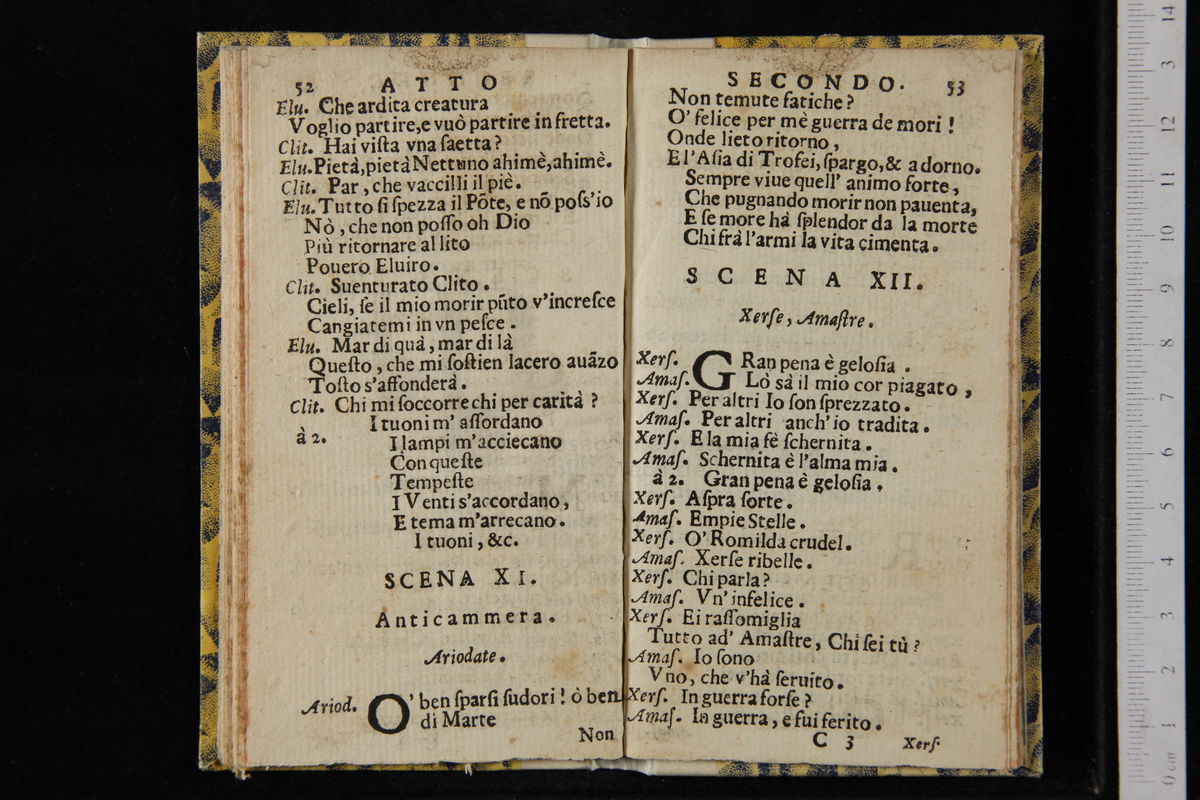 52 ATTO
Elu. Che ardita creatura
Voglio partire,e vuò partire in fretta.
Clit. Hai viſta vna ſaetta?
Elu. Pietà,pietà Nettuno ahimè,ahimè.
Clit. Par, che vaccilli il piè.
Elu. Tutto ſi ſpezza il Põte, e nõ poſs'io
Nò, che non poſſo oh Dio
Più ritornare al lito
Pouero Eluiro.
Clit. Suenturato Clito.
Cieli, ſe il mio morir pũto v'increſce
Cangiatemi in vn peſce.
Elu. Mar di quà, mar di là
Queſto, che mi ſoſtien lacero auãzo
Toſto s'affonderà.
Clit. Chi mi ſoccorre chi per carità?
I tuoni m' aſſordano
à 2. I lampi m'acciecano
Con queſte
Tempeſte
I Venti s'accordano,
E tema m'arrecano.
I tuoni, &c.
SCENA XI.
Anticammera.
Ariodate.
Ariod. O' ben ſparſi ſudori! ò ben
di Marte
Non
SECONDO. 53
Non temute fatiche?
O' felice per mè guerra de mori!
Onde lieto ritorno,
E l'Aſia di Trofei, ſpargo,& adorno.
Sempre viue quell' animo forte,
Che pugnando morir non pauenta,
E ſe more hà ſplendor da la morte
Chi frà l'armi la vita cimenta.
SCENA XII.
Xerſe, Amaſtre.
Xerſ. GRan pena è geloſia.
Amaſ. Lo sà il mio cor piagato,
Xerſ. Per altri Io ſon ſprezzato.
Amaſ. Per altri anch'io tradita.
Xerſ. E la mia fè ſchernita.
Amaſ. Schernita è l'alma mia.
à 2. Gran pena è geloſia.
Xerſ. Aſpra ſorte.
Amaſ. Empie Stelle.
Xerſ. O' Romilda crudel.
Amaſ. Xerſe ribelle.
Xerſ. Chi parla?
Amaſ. Vn' infelice.
Xerſ. Ei raſſomiglia
Tutto ad' Amaſtre, Chi ſei tù?
Amaſ. Io ſono
Vno, che v'hà ſeruito.
Xerſ. In guerra forſe?
Amaſ. In guerra, e fui ferito.
C 3 Xerſ.
0 cm 1 2 3 4 5 6 7 8 9 10 11 12 3 14